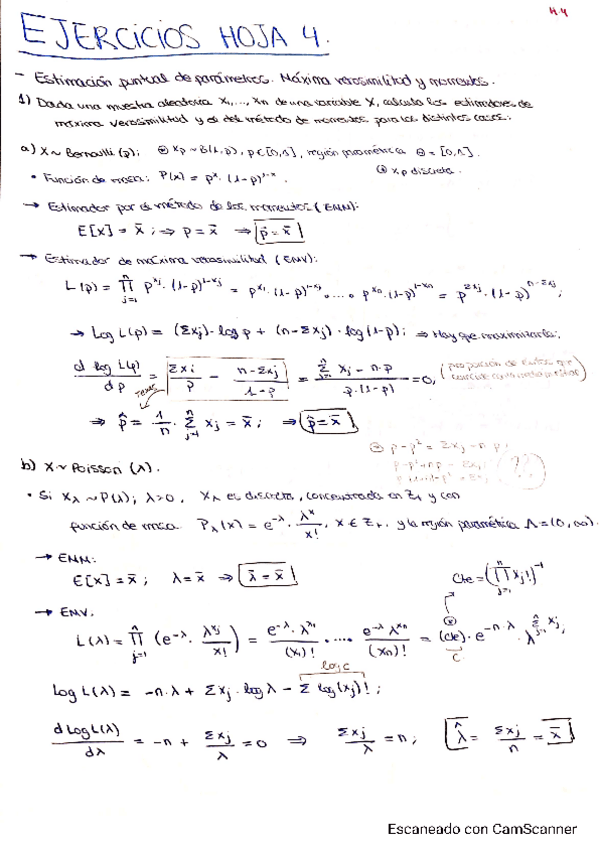 H.4
EJERCICIOS HOJA 4.
- Estimación puntual de parámetros. Máxima verosimilitud y momentos.
1) Dada una muestra aleatoria X₁,..., Xn de una variable X, calcula los estimadores de
máxima verosimilitud y el del método de momentos para los distintos casos:
a) X ~ Bernoulli (p): Xp ~ B(1,p), p∈[0,1], región paramétrica Θ = [0,1].
• Función de masa: P(x) = pˣ·(1-p)¹⁻ˣ. Xp discreta.
→ Estimador por el método de los momentos (EMM):
E[X] = x̄ ; ⇒ p = x̄ ⇒ p̂ = x̄
→ Estimador de máxima verosimilitud (EMV):
L(p) = ∏ⁿⱼ₌₁ p^xj · (1-p)^(1-xj) = p^x₁ · (1-p)^(1-x₁) · .... · p^xn · (1-p)^(1-xn) = p^Σxj · (1-p)^(n-Σxj) ;
→ Log L(p) = (Σxj)·log p + (n-Σxj)·log(1-p); ⇒ Hay que maximizarla:
d log L(p) / dp = Σxi / p - n-Σxj / 1-p = Σⁿⱼ₌₁ xj - n·p / p·(1-p) = 0, (proporción de éxitos que
⇒ p̂ = 1/n · Σⁿⱼ₌₁ xj = x̄ ; ⇒ p̂ = x̄
b) X ~ Poisson (λ).
• Si Xλ ~ P(λ); λ>0, Xλ es discreta, concentrada en Z₊ y con
función de masa Pλ(x) = e^-λ · λˣ/x!, x∈Z₊, y la región paramétrica Λ = (0,∞).
→ EMM:
E[X] = x̄ ; λ = x̄ ⇒ λ̂ = x̄
Cte = (∏ⁿⱼ₌₁ xj!)⁻¹
→ EMV.
L(λ) = ∏ⁿⱼ₌₁ (e^-λ · λ^xj / x!) = e^-λ · λ^x₁ / (x₁)! · .... · e^-λ λ^xn / (xn)! = (Cte) · e^(-n·λ) · λ^(Σⁿⱼ₌₁ xj) ;
c
log c
Log L(λ) = -n·λ + Σxj · log λ - Σ log(xj)! ;
d Log L(λ) / dλ = -n + Σxj / λ = 0 ⇒ Σxj / λ = n ; λ̂ = Σxj / n = x̄
Escaneado con CamScanner